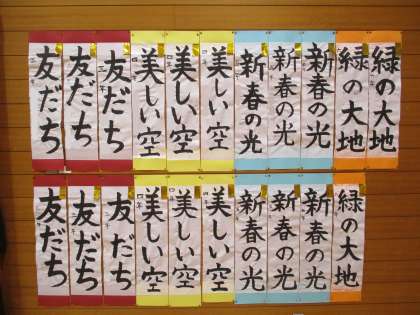 緑の大地
緑の大地
新春の光
新春の光
新春の光
美しい空
美しい空
美しい空
友だち
友だち
友だち
緑の大地
新春の光
新春の光
新春の光
美しい空
美しい空
美しい空
友だち
友だち
友だち